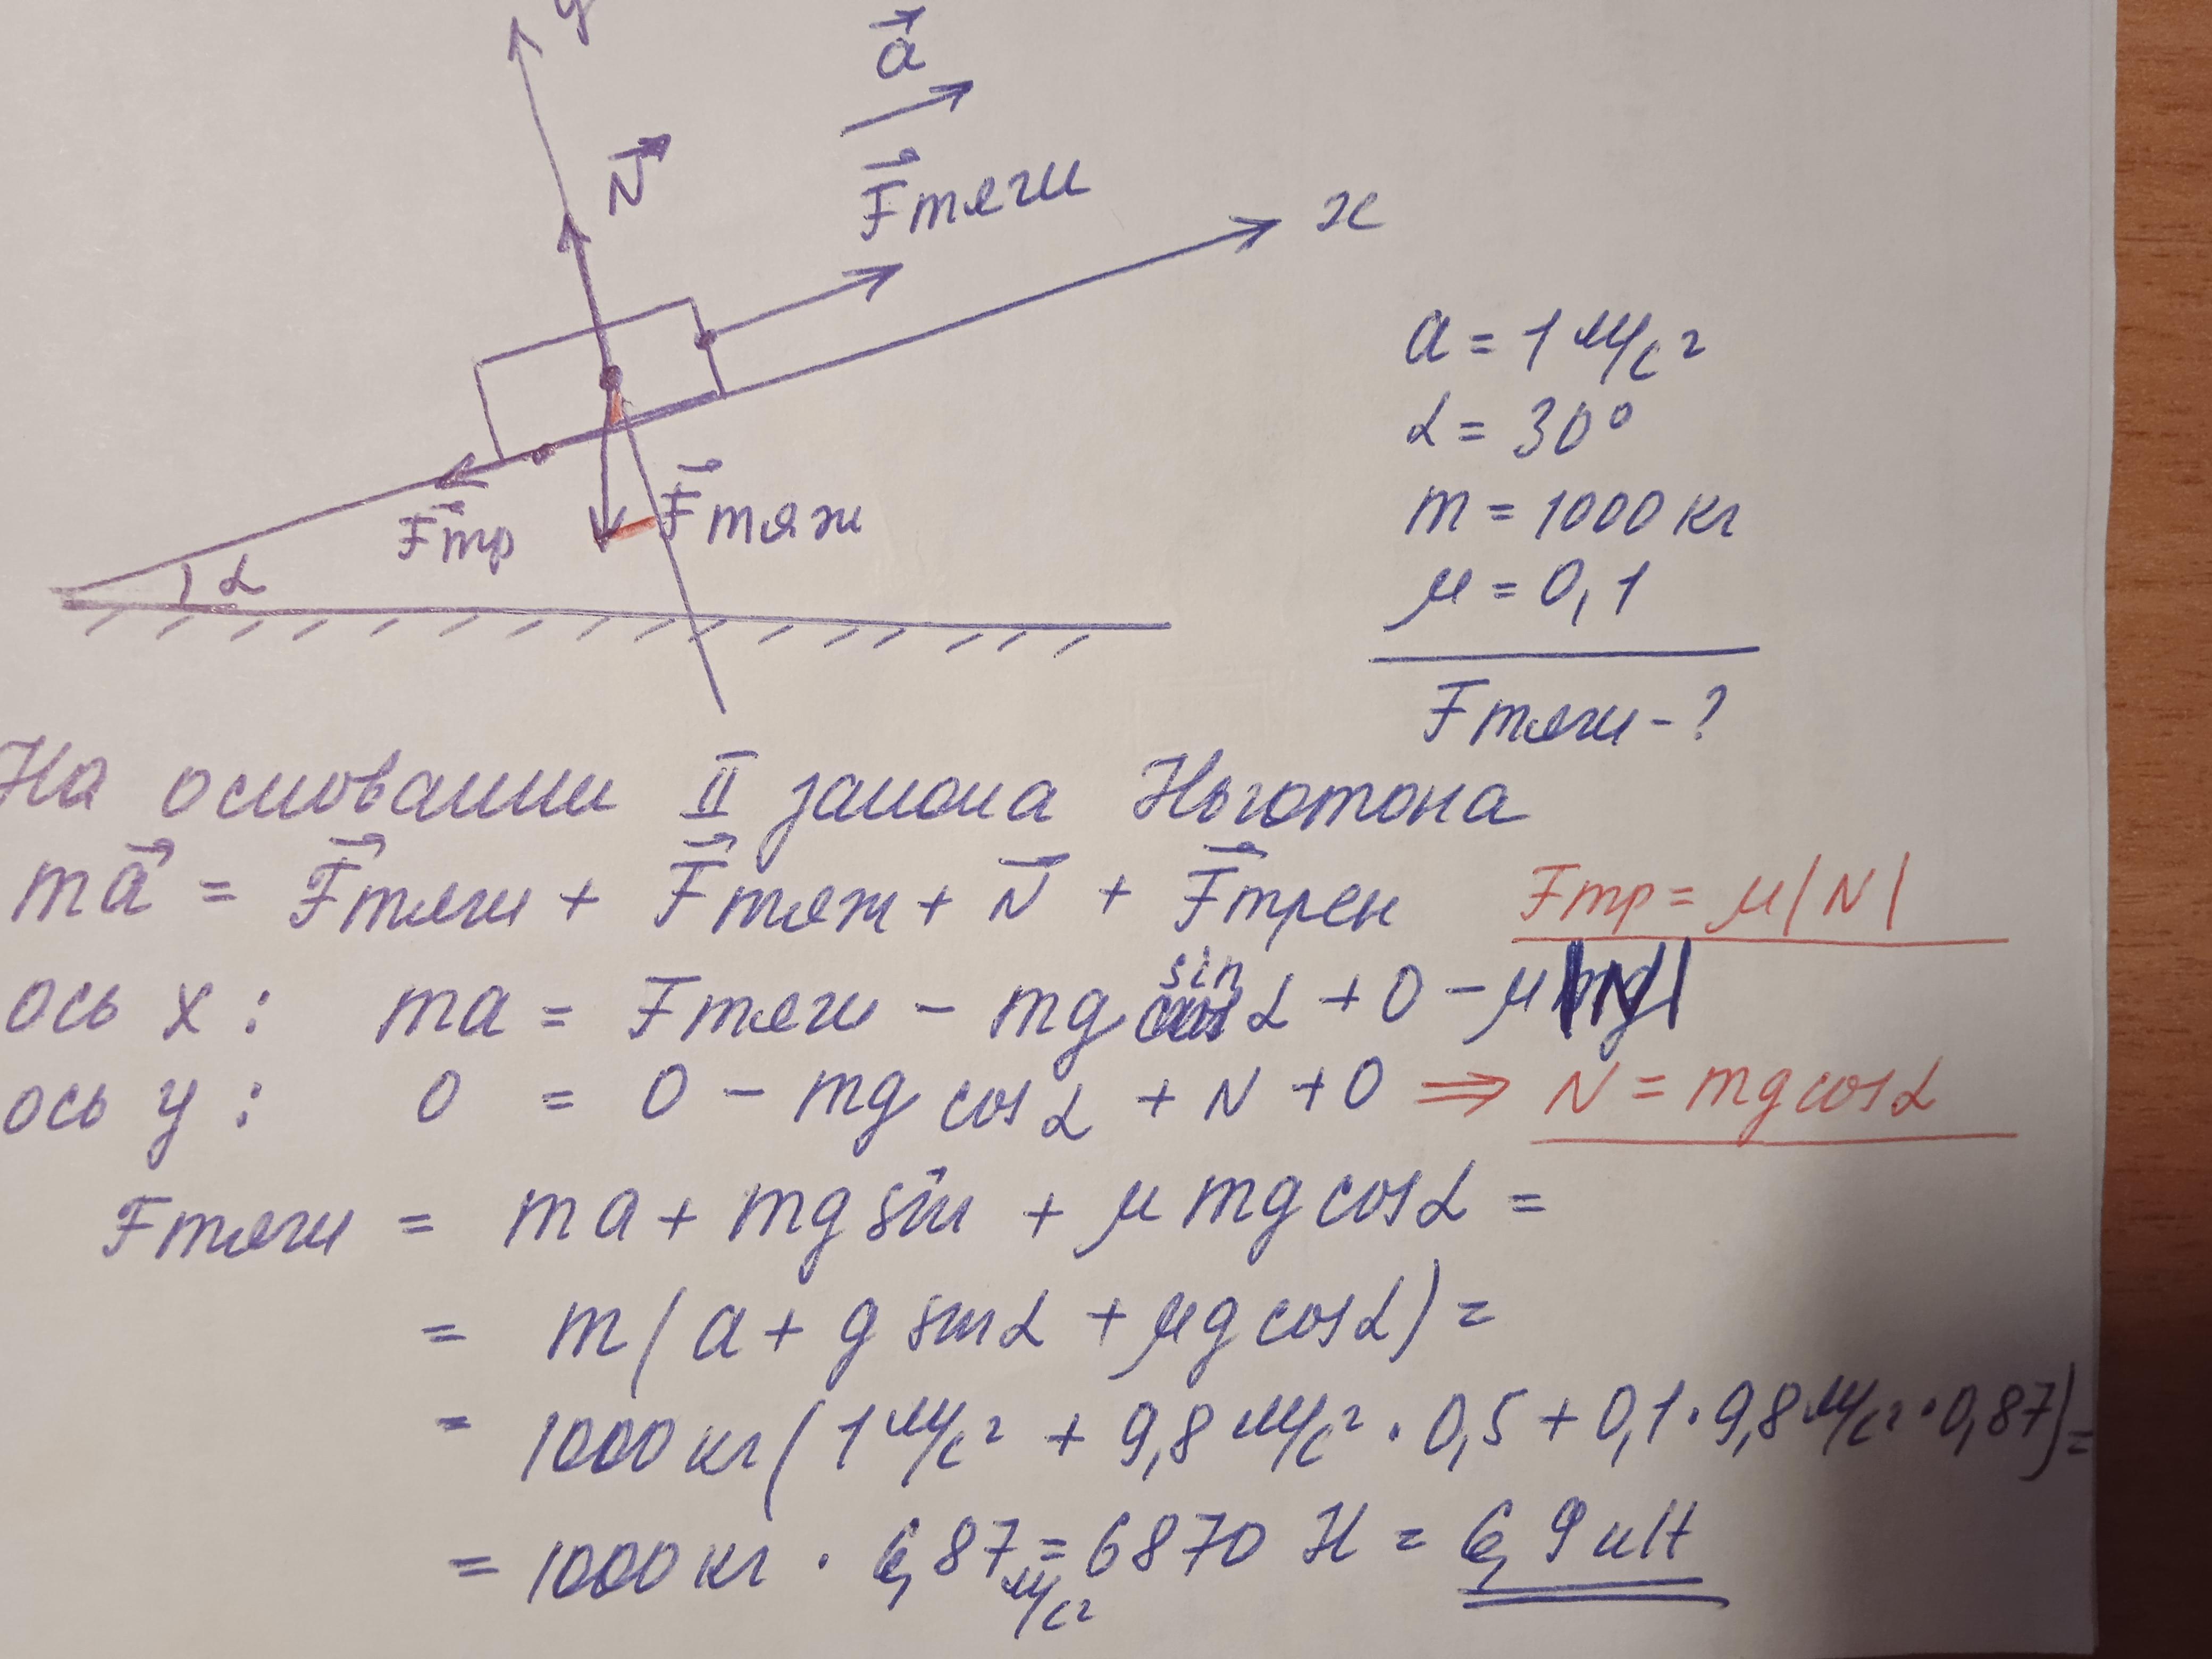 y
a⃗
N⃗
F⃗тяги
x
F⃗тр
F⃗тяж
α
a = 1 м/с²
α = 30°
m = 1000 кг
μ = 0,1
Fтяги - ?
На основании II закона Ньютона
ma⃗ = F⃗тяги + F⃗тяж + N⃗ + F⃗трен
Fтр = μ|N|
ось x : ma = Fтяги - mg sin α + 0 - μ|N|
ось y : 0 = 0 - mg cos α + N + 0 ⇒ N = mg cosα
Fтяги = ma + mg sin + μ mg cosα =
= m(a + g sinα + μg cosα) =
= 1000 кг(1 м/с² + 9,8 м/с² · 0,5 + 0,1 · 9,8 м/с² · 0,87) =
= 1000 кг · 6,87 м/с² = 6870 Н = 6,9 кН